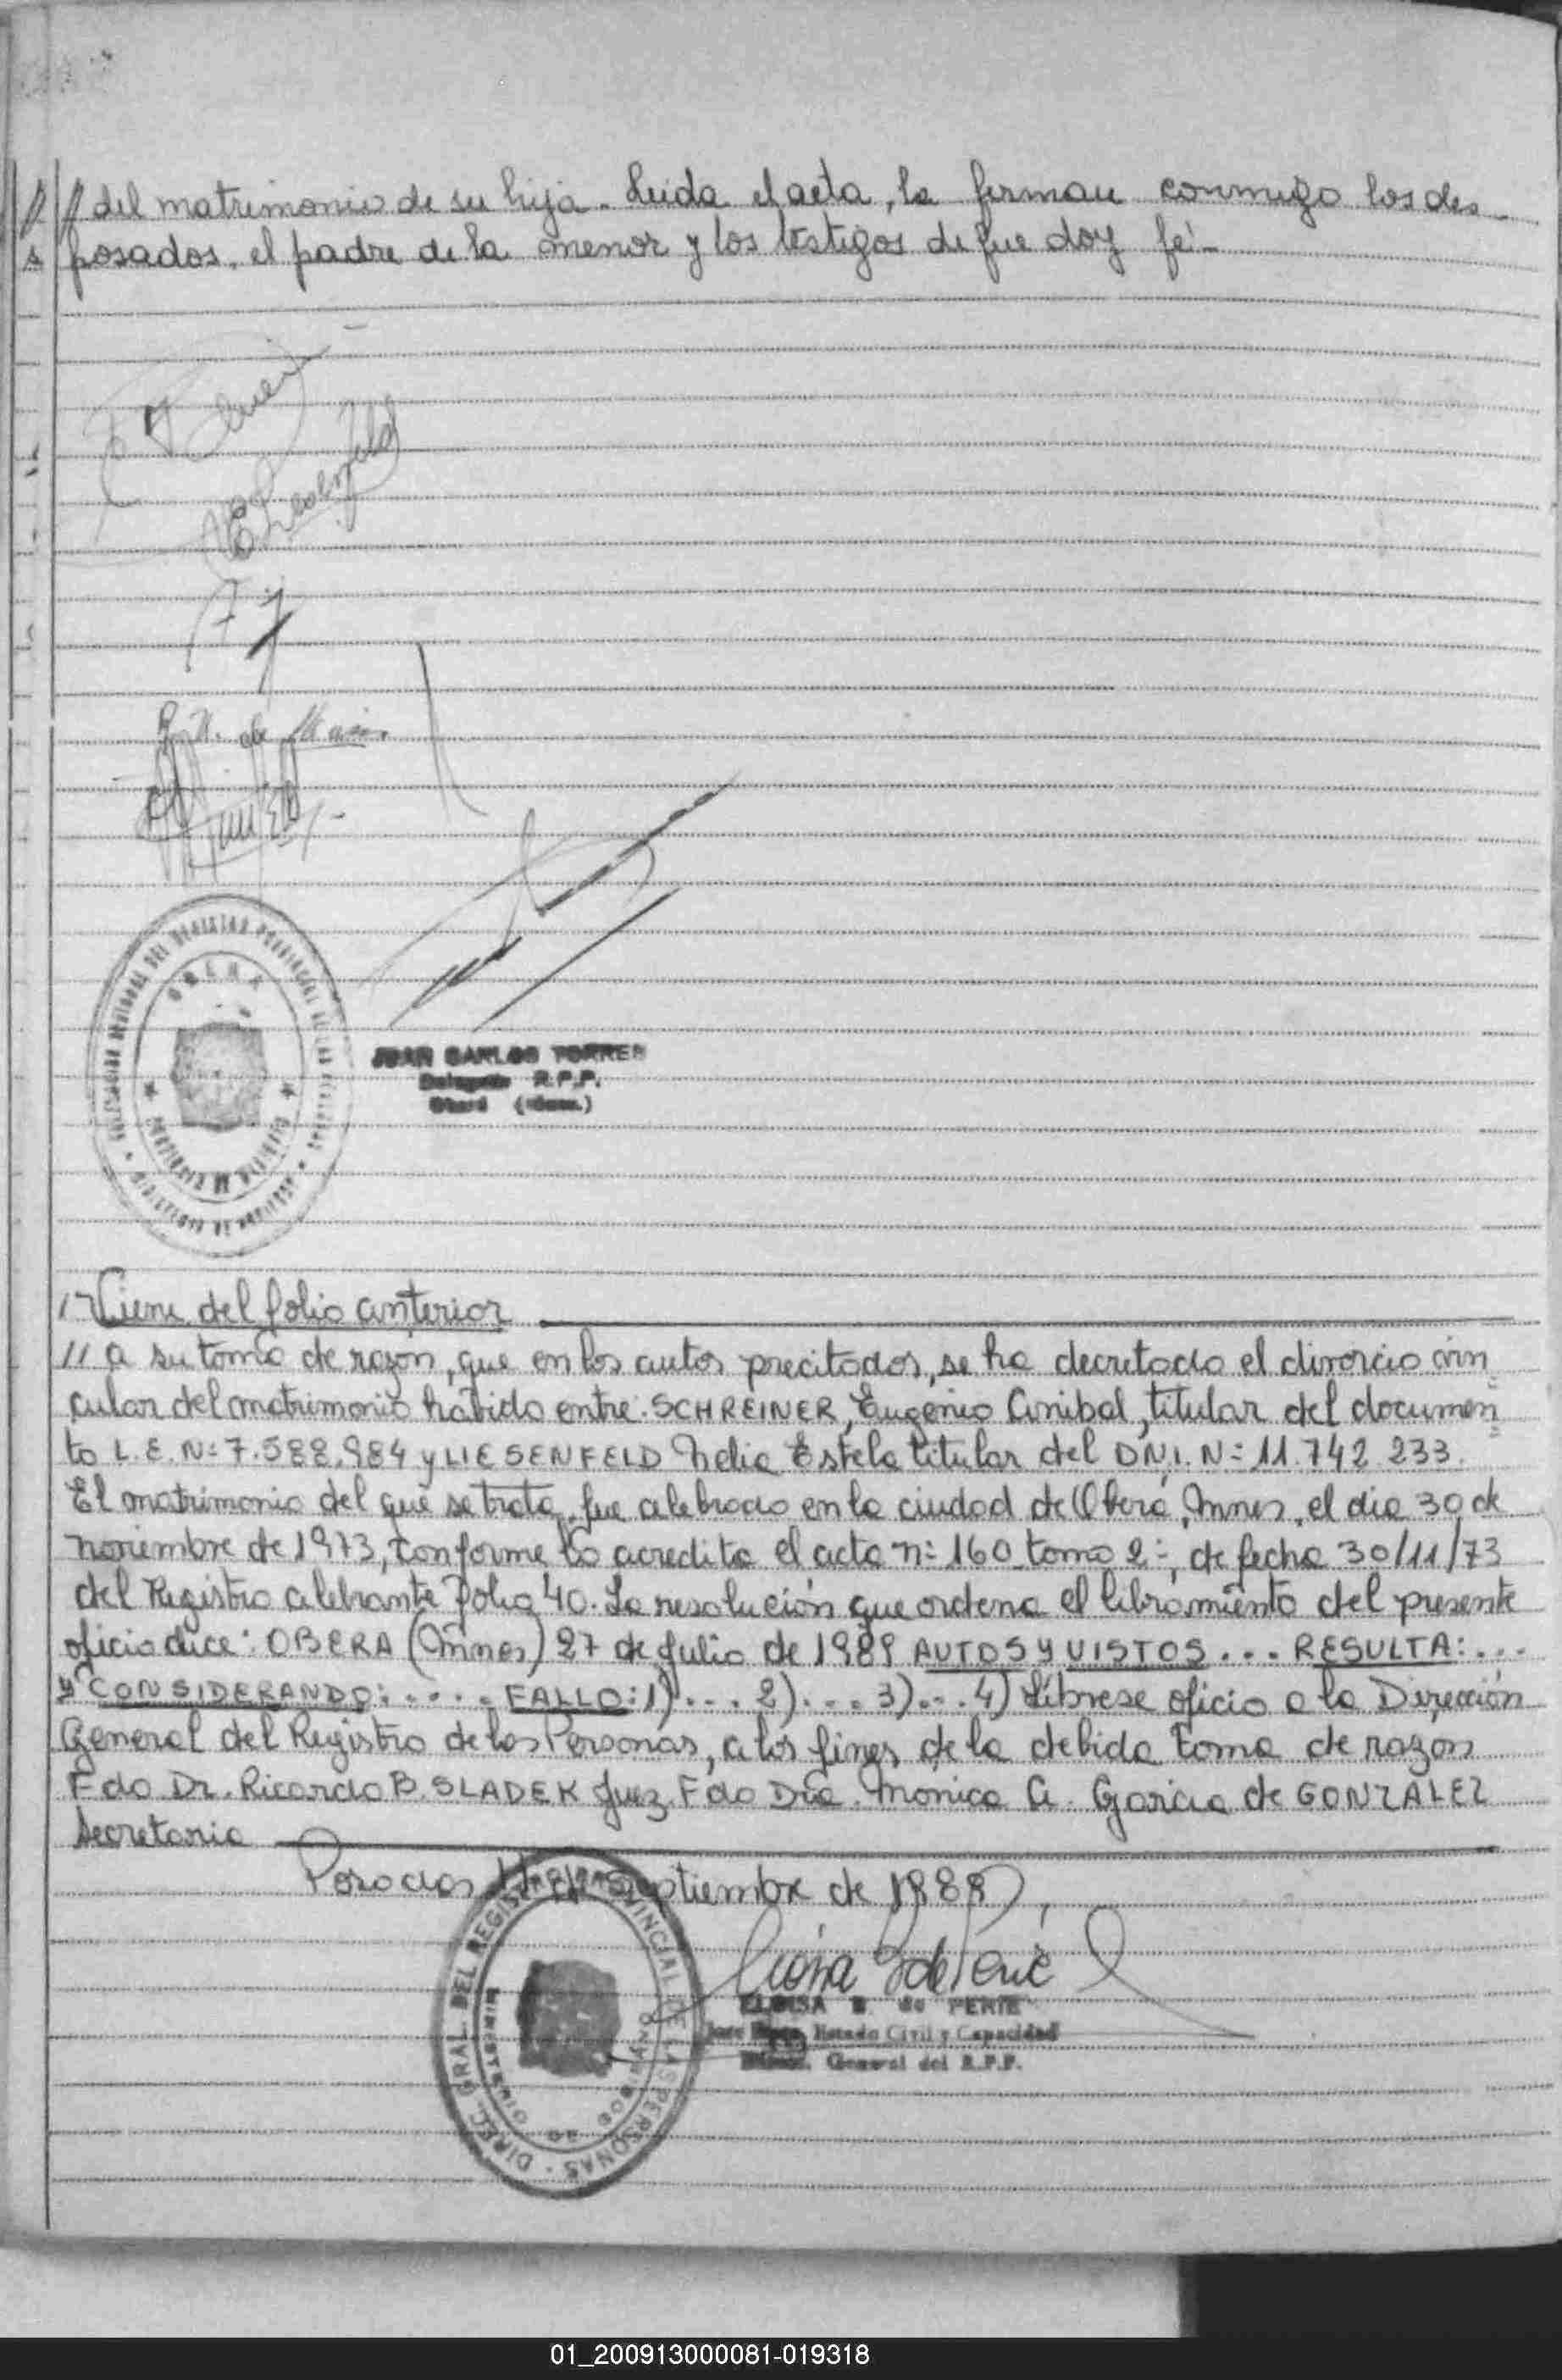 // del matrimonio de su hija. Leida el acta, la firman conmigo los des-
posados, el padre de la menor y los testigos de que doy fé.-
JUAN CARLOS TORRES
Delegado R.P.P.
Oberá
OBERA
Viene del folio anterior
// a su toma de razon, que en los autos precitados, se ha decretado el divorcio vin
cular del matrimonio habido entre: SCHREINER, Eugenio Anibal, titular del documen
to L.E. N: 7.588.984 y LIESENFELD Nelia Estela titular del D.N.I. N= 11.742.233.
El matrimonio del que se trata, fue celebrado en la ciudad de Oberá, Mnes, el dia 30 de
noviembre de 1973, conforme lo acredita el acta n: 160 tomo 2:, de fecha 30/11/73
del Registro celebrante folio 40. La resolución que ordena el libramiento del presente
oficio dice: OBERA (Mnes) 27 de Julio de 1989 AUTOS Y VISTOS... RESULTA:...
y CONSIDERANDO:..... FALLO: 1)... 2)... 3)... 4) Líbrese oficio a la Dirección
General del Registro de las Personas, a los fines de la debida toma de razon
Fdo Dr. Ricardo B. SLADEK Juez. Fdo Dra. Monica A. Garcia de GONZALEZ
Secretaria
Posadas, de Septiembre de 1989
DIREC. GRAL. DEL REGISTRO PROVINCIAL DE LAS PERSONAS
MINISTERIO DE GOBIERNO
ELOISA B. de PERIE
Estado Civil y Capacidad
General del R.P.P.
01_200913000081-019318